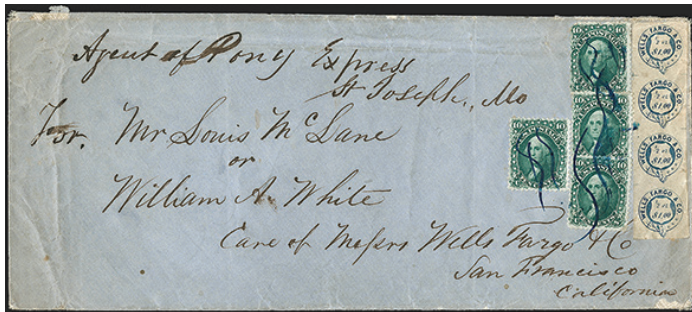 Agent of Pony Express
St Joseph, Mo
For. Mr Louis McLane
or
William A. White
Care of Messrs Wells Fargo & Co
San Francisco
California
10 10
10 10
10 10
10 10
WELLS FARGO & CO
$1.00
WELLS FARGO & CO
$1.00
WELLS FARGO & CO
$1.00
WELLS FARGO & CO
$1.00